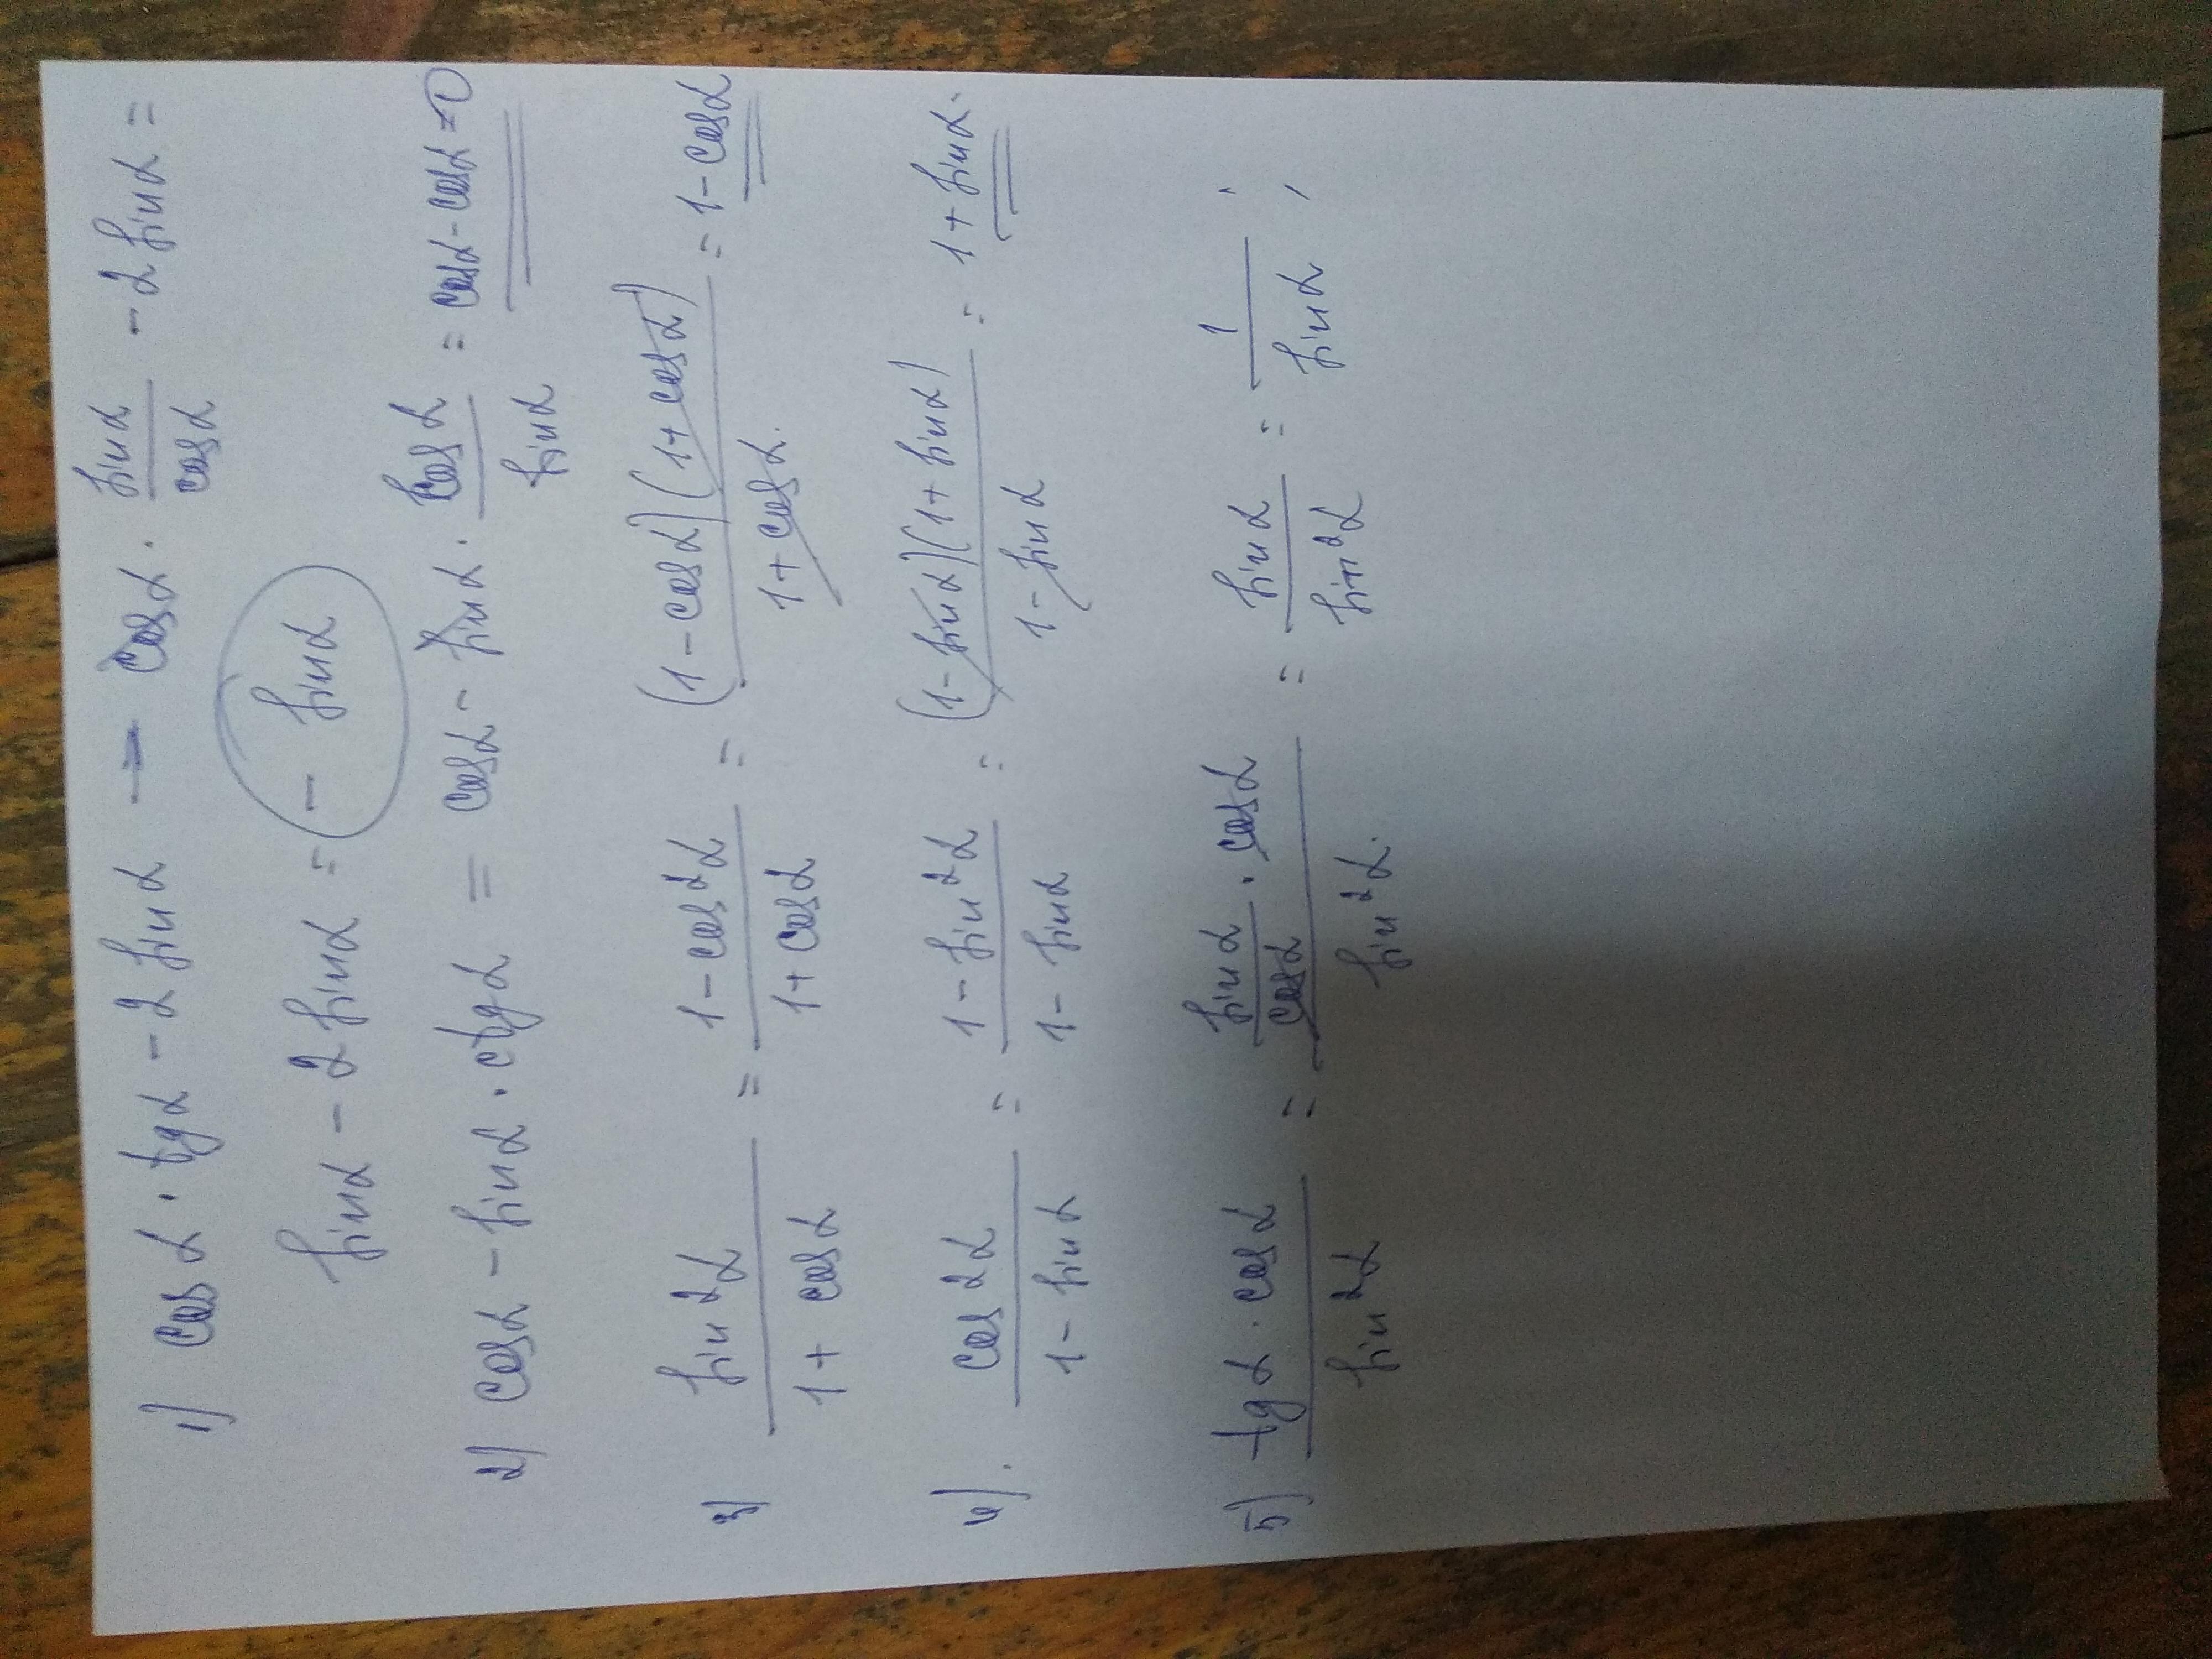 1) cos α · tg α - 2 sin α = cos α · sin α / cos α - 2 sin α =
sin α - 2 sin α = - sin α
2) cos α - sin α · ctg α = cos α - sin α · cos α / sin α = cos α - cos α = 0
3) sin²α / 1 + cos α = 1 - cos²α / 1 + cos α = (1 - cos α)(1 + cos α) / 1 + cos α. = 1 - cos α
4). cos²α / 1 - sin α = 1 - sin²α / 1 - sin α = (1 - sin α)(1 + sin α) / 1 - sin α = 1 + sin α.
5) tg α · cos α / sin²α = sin α / cos α · cos α / sin²α. = sin α / sin²α = 1 / sin α ;